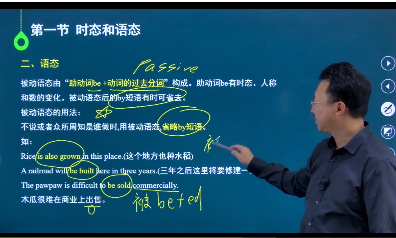 第一节 时态和语态
二、语态
Passive
被动语态由“助动词be +动词的过去分词”构成。助动词be有时态、人称
和数的变化。被动语态后的by短语有时可省去。
被动语态的用法:
不说或者众所周知是谁做时,用被动语态,省略by短语。
如:
Rice is also grown in this place.(这个地方也种水稻)
A railroad will be built here in three years.(三年之后这里将要修建一
The pawpaw is difficult to be sold commercially.
木瓜很难在商业上出售。
被 be+ed